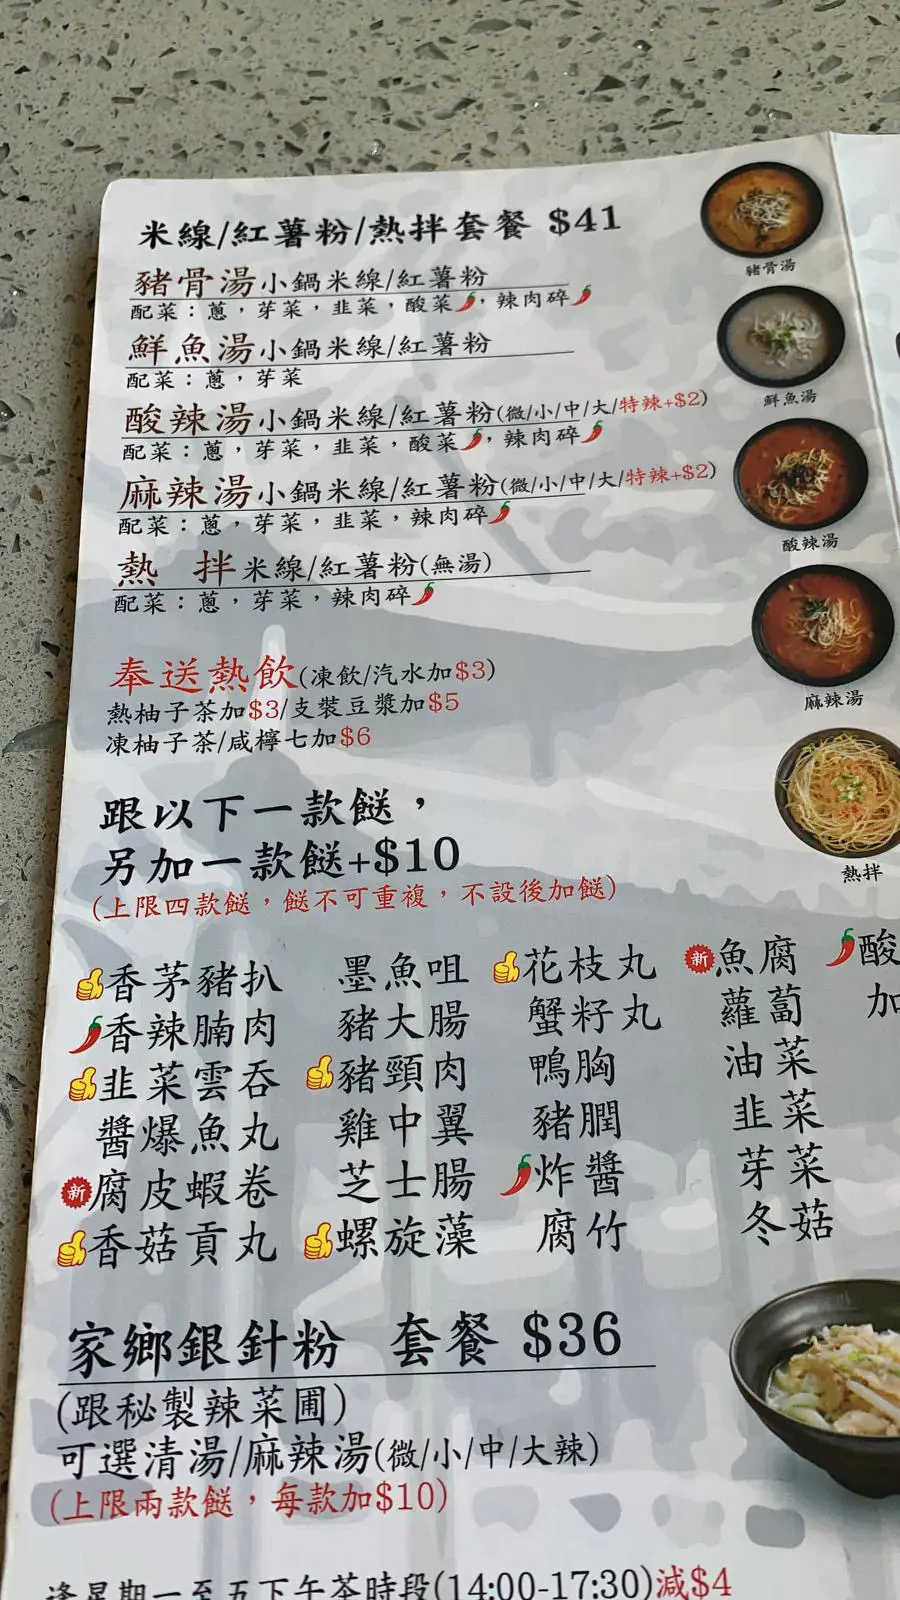 米線/紅薯粉/熱拌套餐 $41
豬骨湯小鍋米線/紅薯粉
配菜：蔥，芽菜，韭菜，酸菜，辣肉碎
豬骨湯
鮮魚湯小鍋米線/紅薯粉
配菜：蔥，芽菜
鮮魚湯
酸辣湯小鍋米線/紅薯粉(微/小/中/大/特辣+$2)
配菜：蔥，芽菜，韭菜，酸菜，辣肉碎
酸辣湯
麻辣湯小鍋米線/紅薯粉(微/小/中/大/特辣+$2)
配菜：蔥，芽菜，韭菜，辣肉碎
麻辣湯
熱 拌米線/紅薯粉(無湯)
配菜：蔥，芽菜，辣肉碎
熱拌
奉送熱飲(凍飲/汽水加$3)
熱柚子茶加$3/支裝豆漿加$5
凍柚子茶/咸檸七加$6
跟以下一款餸，
另加一款餸+$10
(上限四款餸，餸不可重複，不設後加餸)
香茅豬扒 墨魚咀 花枝丸 新魚腐 酸
香辣腩肉 豬大腸 蟹籽丸 蘿蔔 加
韭菜雲吞 豬頸肉 鴨胸 油菜
醬爆魚丸 雞中翼 豬膶 韭菜
新腐皮蝦卷 芝士腸 炸醬 芽菜
香菇貢丸 螺旋藻 腐竹 冬菇
家鄉銀針粉 套餐 $36
(跟秘製辣菜圃)
可選清湯/麻辣湯(微/小/中/大辣)
(上限兩款餸，每款加$10)
逢星期一至五下午茶時段(14:00-17:30)減$4